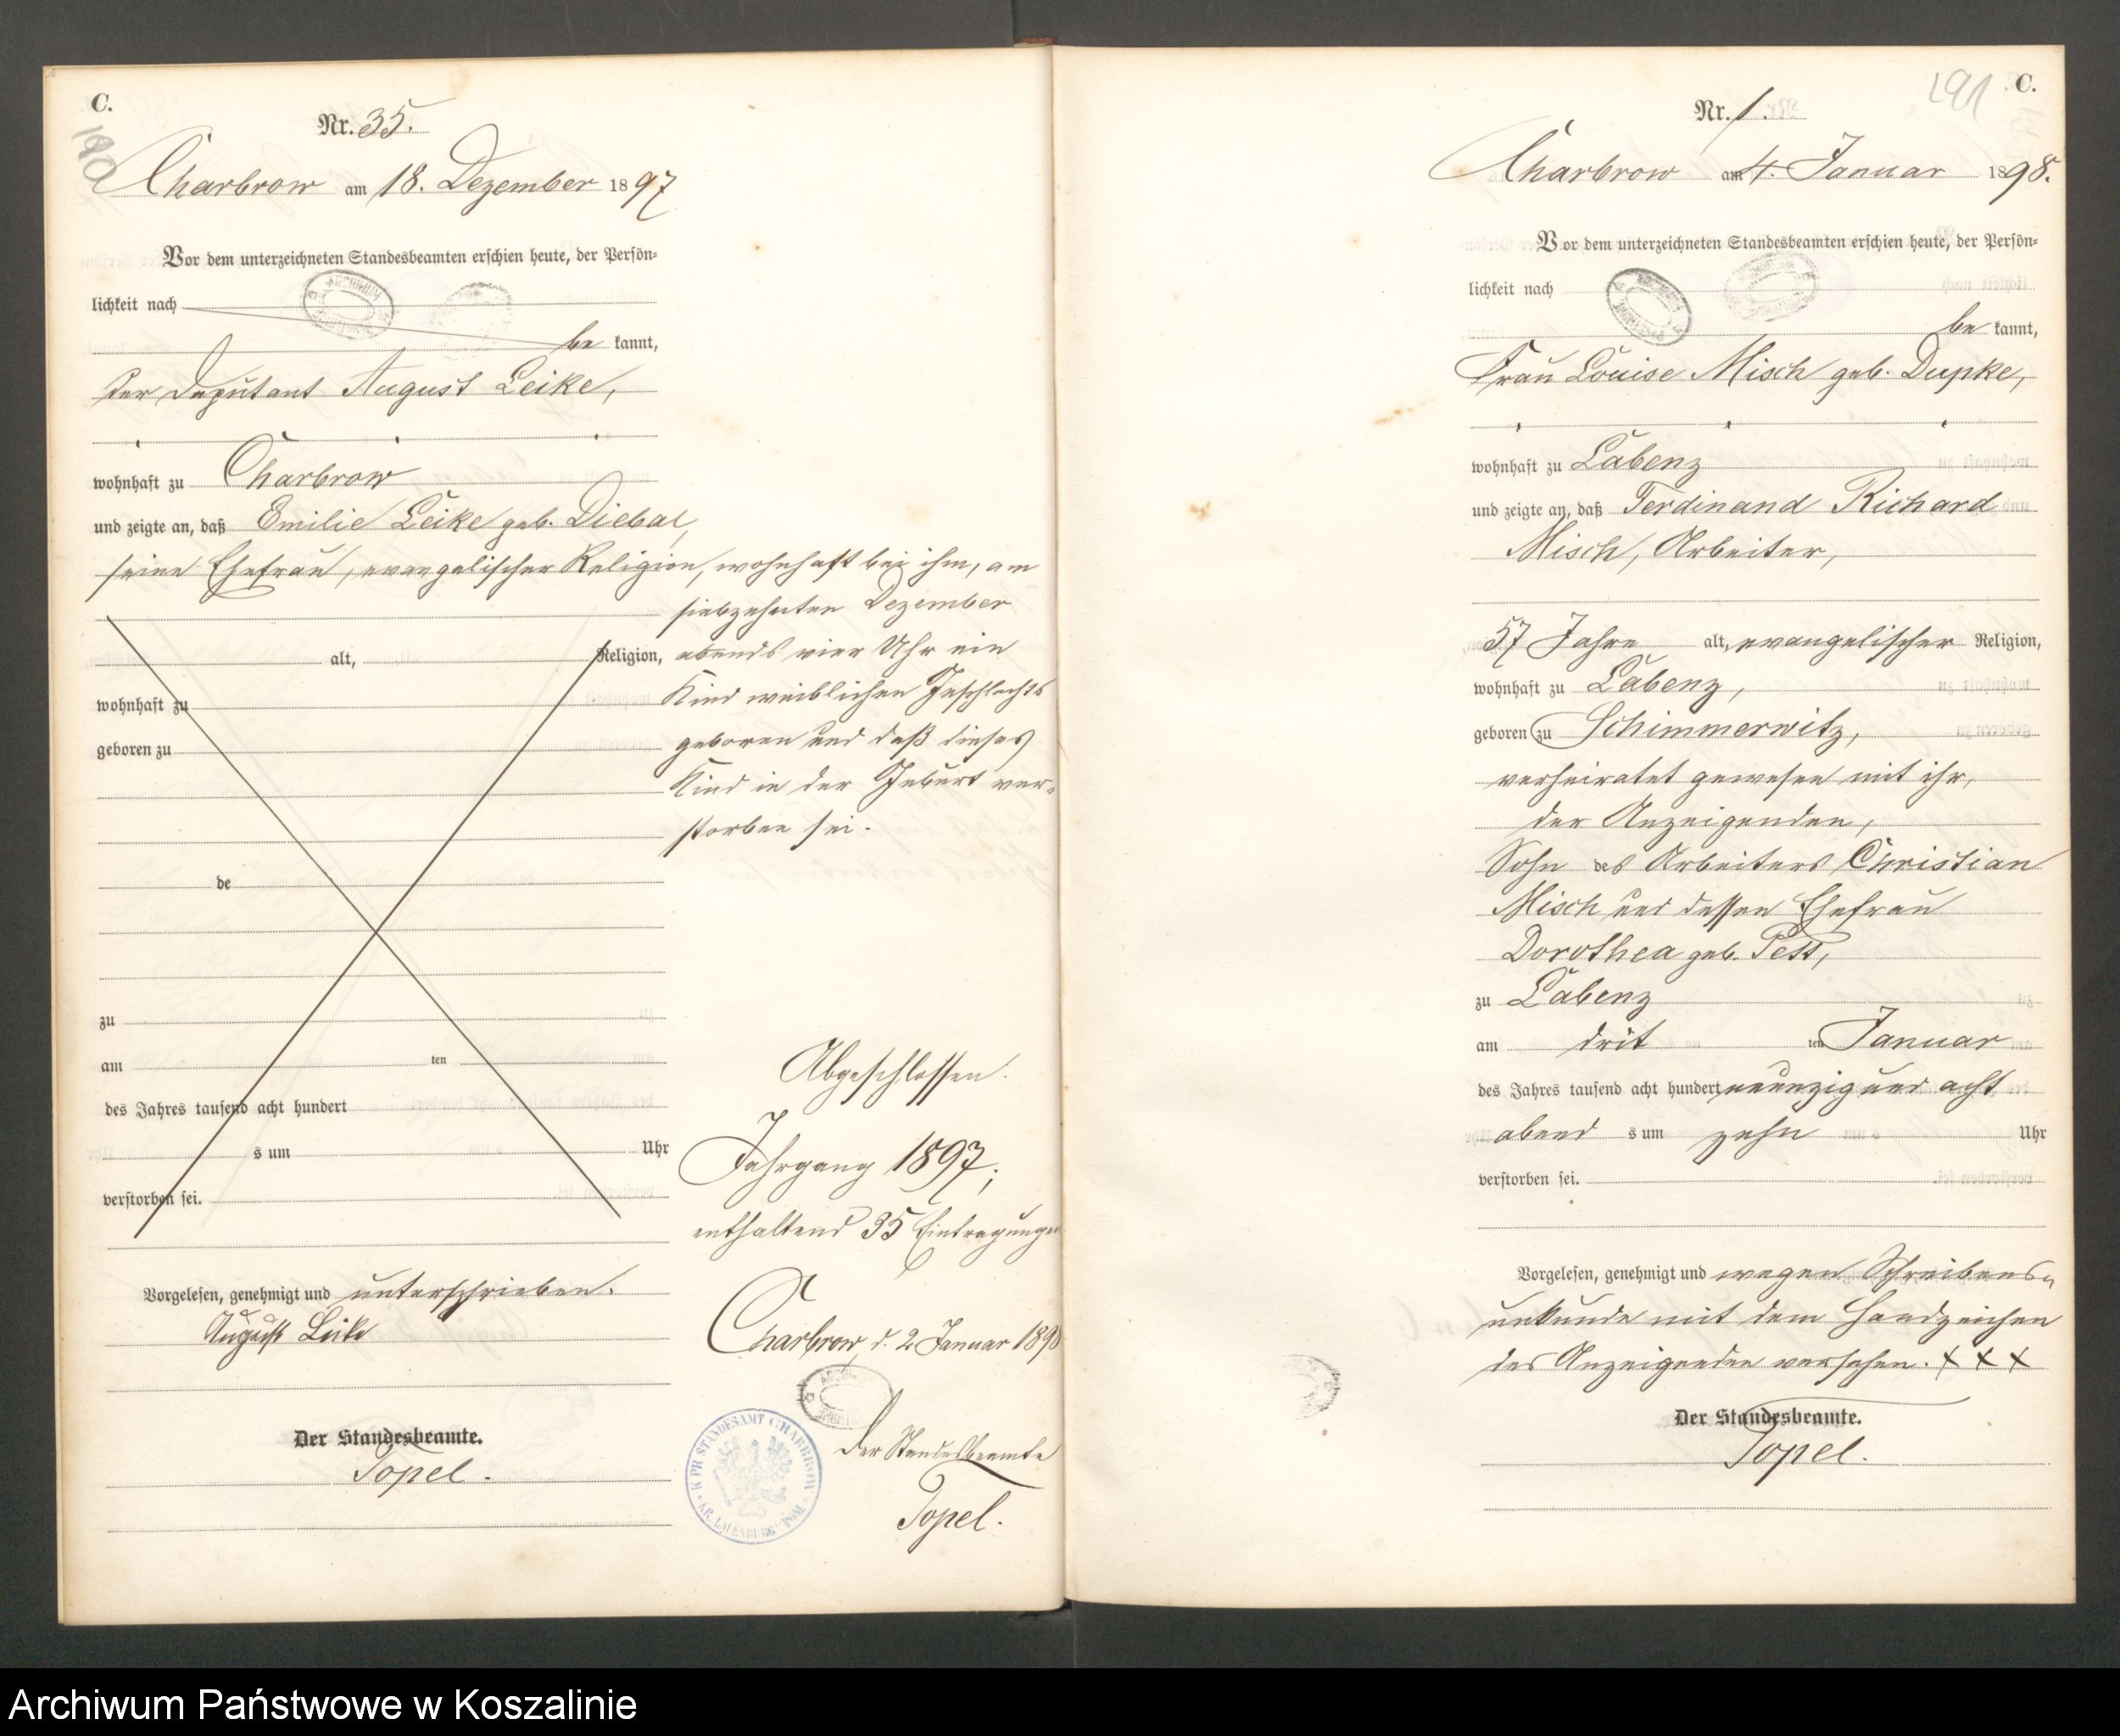 C.
190
Nr. 35.
Charbrow am 18. Dezember 1897
Vor dem unterzeichneten Standesbeamten erschien heute, der Persön-
lichkeit nach
be kannt,
der Deputant August Leike,
wohnhaft zu Charbrow
und zeigte an, daß Emilie Leike geb. Diebal,
seine Ehefrau, evangelischer Religion, wohnhaft bei ihm, am
siebzehnten Dezember
abends vier Uhr ein
Kind weiblichen Geschlechts
geboren und daß dieses
Kind in der Geburt ver-
storben sei.
alt, Religion,
wohnhaft zu
geboren zu
de
zu
am ten
des Jahres tausend acht hundert
s um Uhr
verstorben sei.
Vorgelesen, genehmigt und unterschrieben.
August Leike
Der Standesbeamte.
Topel.
Abgeschlossen.
Jahrgang 1897,
enthaltend 35 Eintragungen
Charbrow, d. 2 Januar 1898
Der Standesbeamte
Topel.
K. PR. STANDESAMT CHARBROW
KR. LAUENBURG POM.
ARCHIWUM
C.
191
Nr. 1.
Charbrow am 4. Januar 1898.
Vor dem unterzeichneten Standesbeamten erschien heute, der Persön-
lichkeit nach
be kannt,
Frau Louise Misch geb. Dupke,
wohnhaft zu Labenz
und zeigte an, daß Ferdinand Richard
Misch, Arbeiter,
57 Jahre alt, evangelischer Religion,
wohnhaft zu Labenz,
geboren zu Schimmerwitz,
verheiratet gewesen mit ihr,
der Anzeigenden,
Sohn des Arbeiters Christian
Misch und dessen Ehefrau
Dorothea geb. Pett,
zu Labenz
am drit ten Januar
des Jahres tausend acht hundert neunzig und acht
abend s um zehn Uhr
verstorben sei.
Vorgelesen, genehmigt und wegen Schreibens-
unkunde mit dem Handzeichen
der Anzeigenden versehen. X X X
Der Standesbeamte.
Topel.
Archiwum Państwowe w Koszalinie